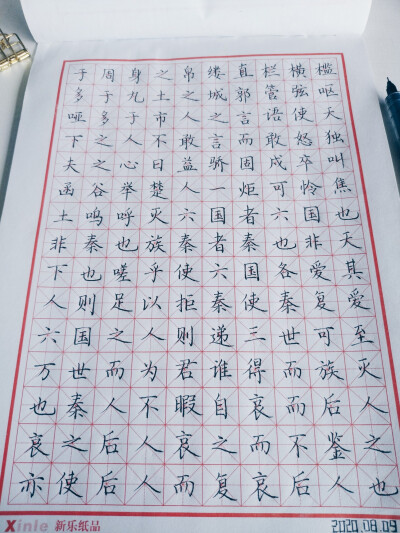 于周身之帛缕直栏横槛
多于九土之城郭管弦呕
哑多于市人之言语使天
下之人不敢言而敢怒独
夫之心日益骄固戍卒叫
函谷举楚人一炬可怜焦
土呜呼灭六国者六国也
非秦也族秦者秦也非天
下也嗟乎使六国各爱其
人则足以拒秦使秦复爱
六国之人则递三世可至
万世而为君谁得而族灭
也秦人不暇自哀而后人
哀之后人哀之而不鉴之
亦使后人而复哀后人也
Xinle 新乐纸品
2020.08.09